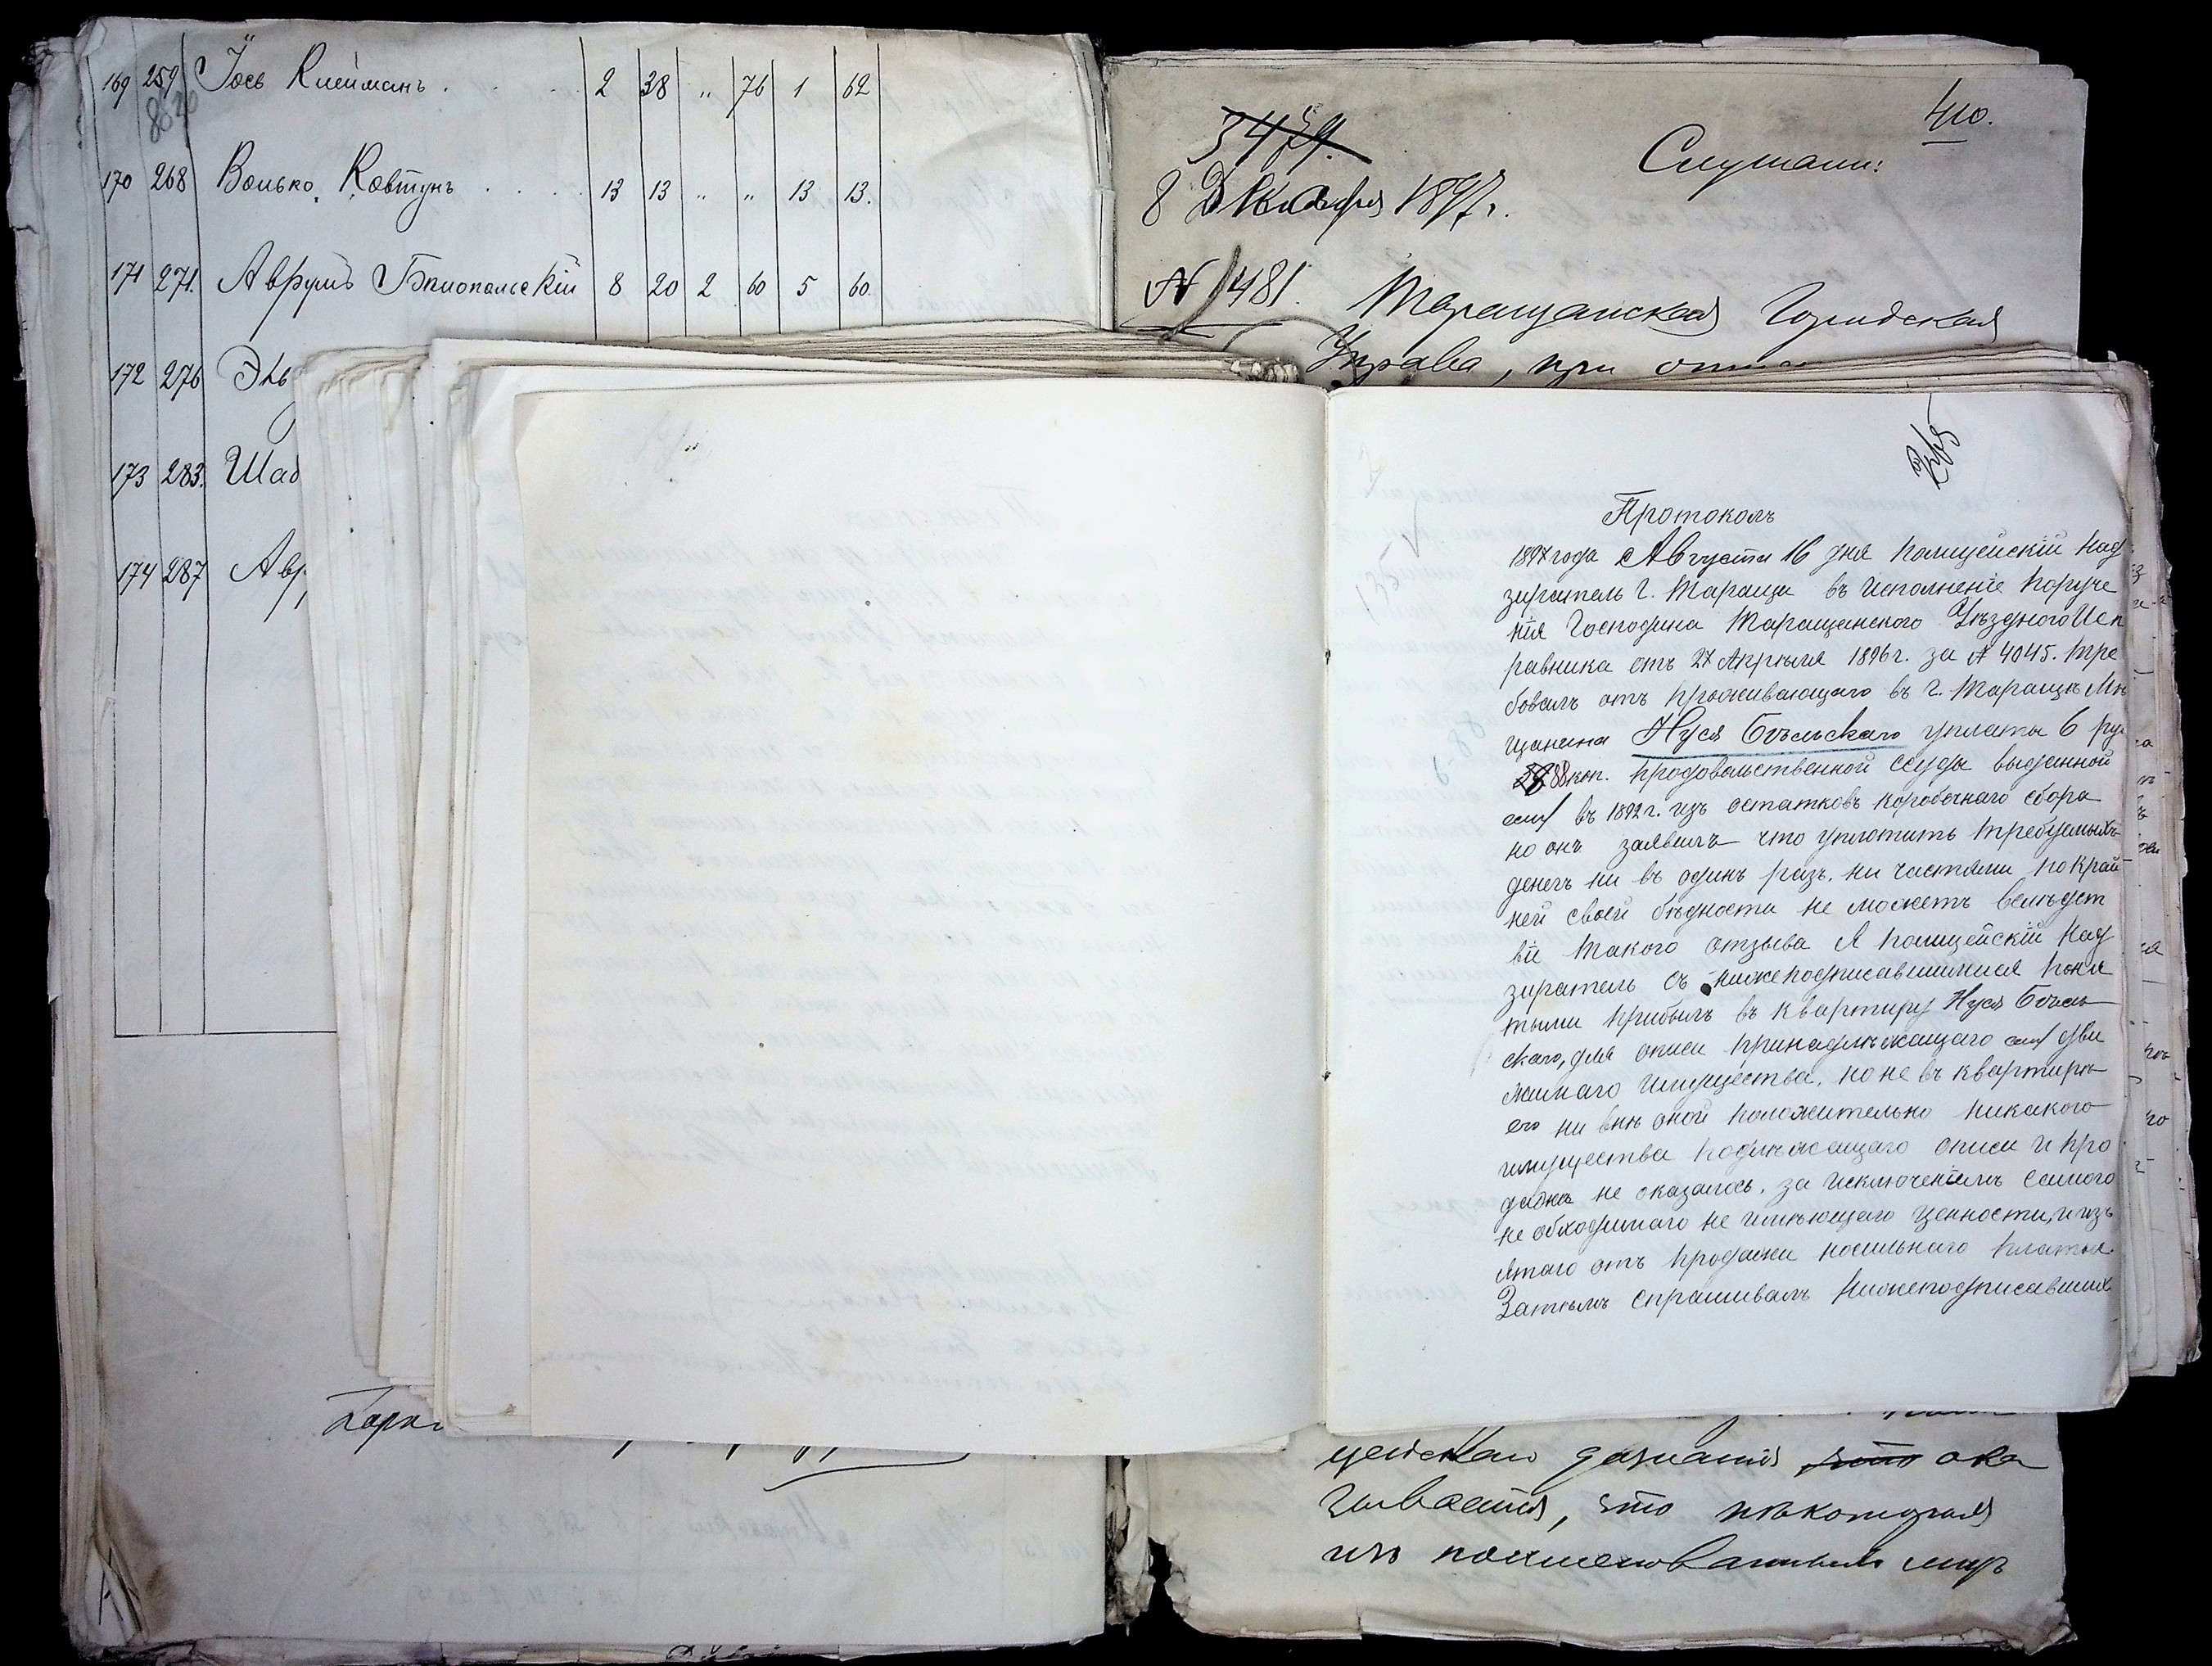 169 259 Іось Клейманъ . . . 2 38 „ 76 1 62
170 268 Волько Ковтунъ . . . . 13 13 „ „ 13 13.
171 271. Аврумъ Бѣлопольскій 8 20 2 60 5 60.
172 276
173 283.
174 287
410.
Слушали:
8 Декабря 1897 г.
№ 1481. Таращанская Городская
Управа, при
Протоколъ
1897 года Августа 16 дня Полицейскій Над
зиратель г. Таращи въ исполненіе поруче
нія Господина Таращанского Уѣздного Исп
равника отъ 27 Апрѣля 1896 г. за № 4045. тре
бовалъ отъ проживающаго въ г. Таращѣ Мѣ
щанина Нуся Бѣльскаго уплаты 6 ру
88 коп. продовольственной ссуды выданной
ему въ 1892 г. изъ остатковъ коробочнаго сбора
но онъ заявилъ что уплатить требуемыхъ
денегъ ни въ одинъ разъ. ни частями по край
ней своей бѣдности не можетъ вслѣдст
віи такого отзыва Я Полицейскій Над
зиратель съ нижеподписавшимися поня
тыми прибылъ въ квартиру Нуся Бѣль
скаго, для описи принадлѣжащаго ему дви
жимаго имущества, но не въ квартирѣ
его ни внѣ оной положительно никакого
имущества подлѣжащаго описи и про
дажѣ не оказалось, за исключеніемъ самого
не обходимаго не имѣющаго ценности, и изъ
ятаго отъ продажи носильнаго платья.
Затѣмъ спрашивалъ нижеподписавших
цейскаго дознанія что ока
зывается, что нѣкоторыя
изъ поименованныхъ